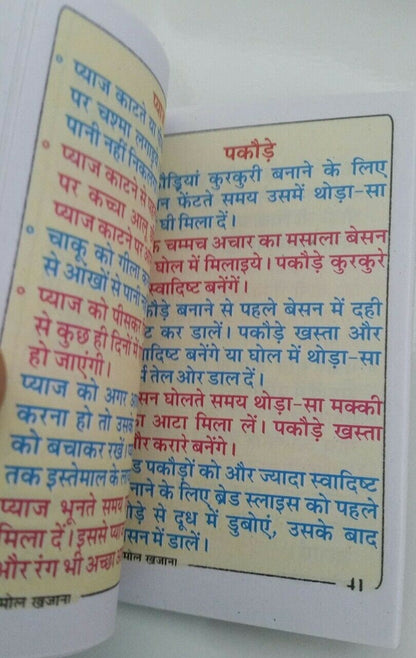 प्याज काटते
पर चश्मा
पानी नहीं
प्याज काटने
पर कच्चा
प्याज काटने पर
चाकू को गीला
से आंखों से पानी
प्याज को पीसकर
से कुछ ही दिनों में
हो जाएंगी।
प्याज को अगर
करना हो तो उसके
को बचाकर रखें।
तक इस्तेमाल के
प्याज भूनते समय
मिला दें। इससे
और रंग भी अच्छा
मोल खजाना
पकौड़े
कुरकुरी बनाने के लिए
फेंटते समय उसमें थोड़ा-सा
घी मिला दें।
चम्मच अचार का मसाला बेसन
घोल में मिलाइये। पकौड़े कुरकुरे
स्वादिष्ट बनेंगें।
बनाने से पहले बेसन में दही
कर डालें। पकौड़े खस्ता और
बनेंगे या घोल में थोड़ा-सा
तेल ओर डाल दें।
घोलते समय थोड़ा-सा मक्की
आटा मिला लें। पकौड़े खस्ता
और करारे बनेंगे।
पकौडों को और ज्यादा स्वादिष्ट
के लिए ब्रेड स्लाइस को पहले
से दूध में डुबोएं, उसके बाद
में डालें।
मोल खजाना
41